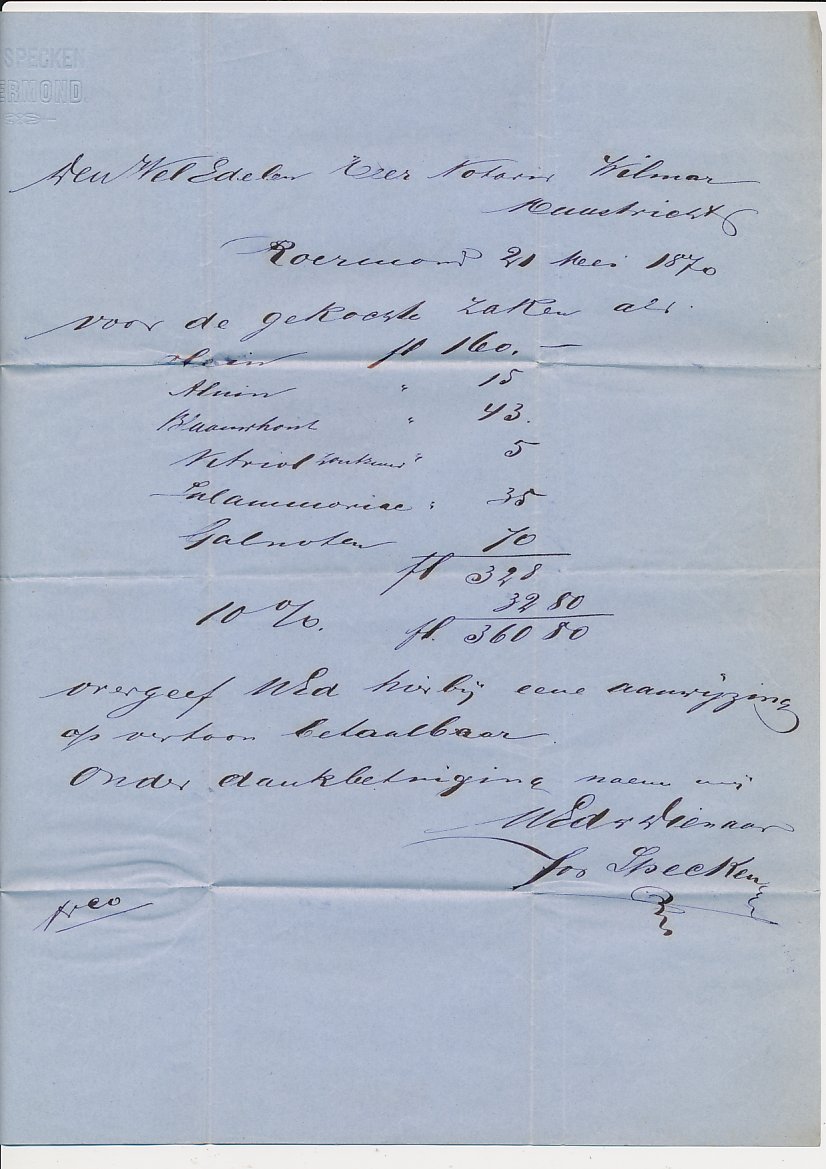 SPECKEN
ERMOND.
Den WelEdelen Heer Notaris Wilmar
Maastricht
Roermond 21 Mei 1870
voor de gekochte zaken als.
fl 160.—
Aluin " 15
Blaauwhout " 43.
Vetriol " 5
Salammoniac " 35
Galnoten 70
fl 328
10 %. 32 80
fl. 360 80
overgeef UEd hierbij eene aanwijzing
op vertoon betaalbaar.
Onder dankbetuiging noem mij
UEd v Dienaar
Jos Specken
frco